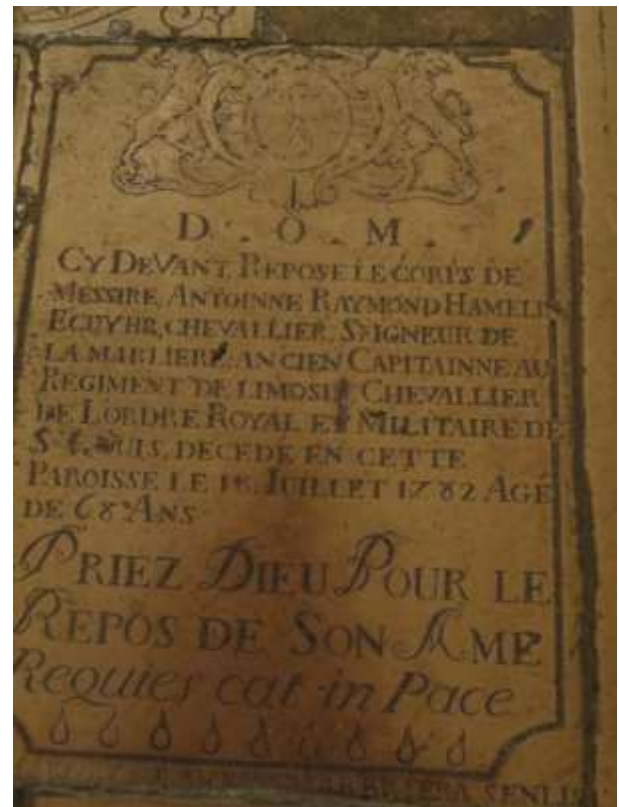 D. O. M.
CY DEVANT REPOSE LE CORPS DE
MESSIRE ANTOINNE RAYMOND HAMELIN
ECUYER, CHEVALLIER, SEIGNEUR DE
LA MARLIERE, ANCIEN CAPITAINNE AU
REGIMENT DE LIMOSIN CHEVALLIER
DE LORDRE ROYAL ET MILITAIRE DE
ST LOUIS, DECEDE EN CETTE
PAROISSE LE JUILLET 1782 AGE
DE 68 ANS
PRIEZ DIEU POUR LE
REPOS DE SON AME
Requies cat in Pace
SENLIS